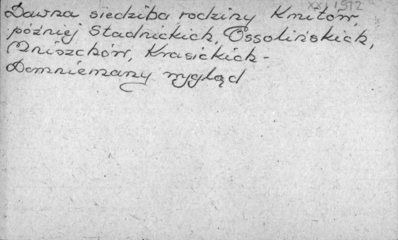 XXI 1972
Dawna siedziba rodziny Kmitów,
później Stadnickich, Ossolińskich,
Mniszchów, Krasickich -
Domniemany wygląd